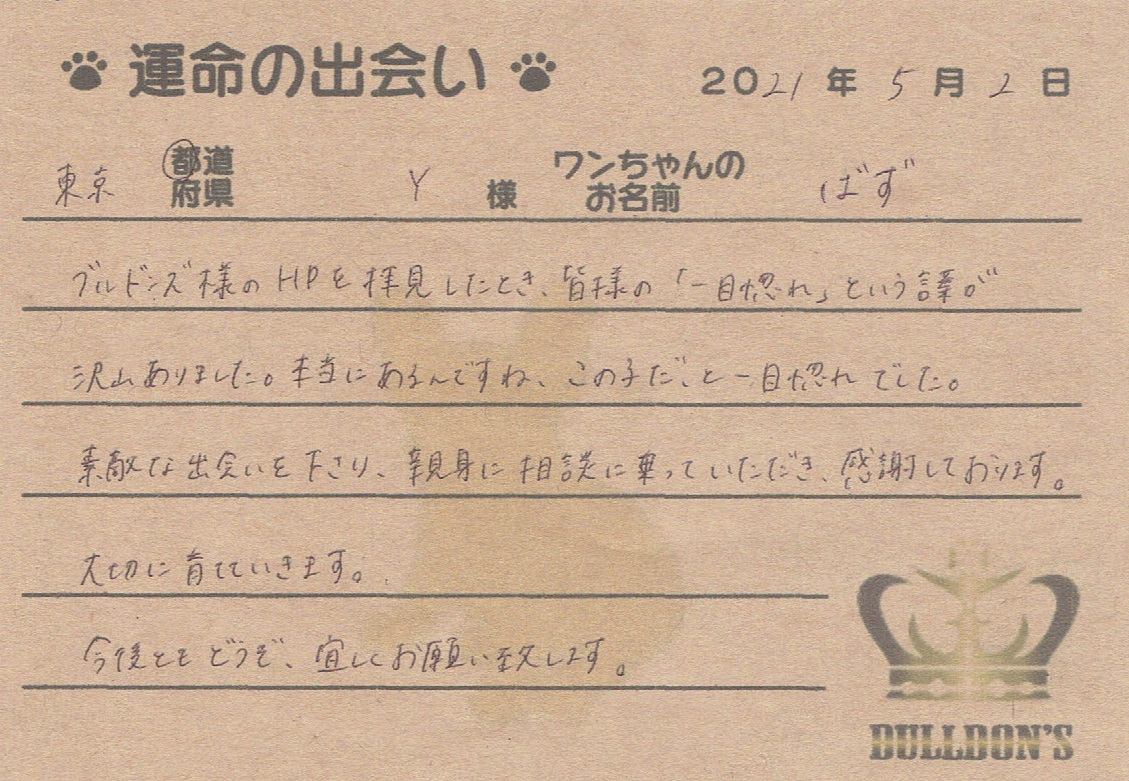 運命の出会い 2021年5月2日
東京 都道府県 Y 様 ワンちゃんのお名前 ばず
ブルドンズ様のHPを拝見したとき、皆様の「一目惚れ」という譯が
沢山ありました。本当にあるんですね、この子だ、と一目惚れでした。
素敵な出会いを下さり、親身に相談に乗っていただき、感謝しております。
大切に育てていきます。
今後ともどうぞ、宜しくお願い致します。
BULLDON'S